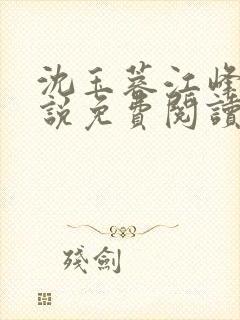 沈玉蓉江峰
說免費閱讀
殘劍